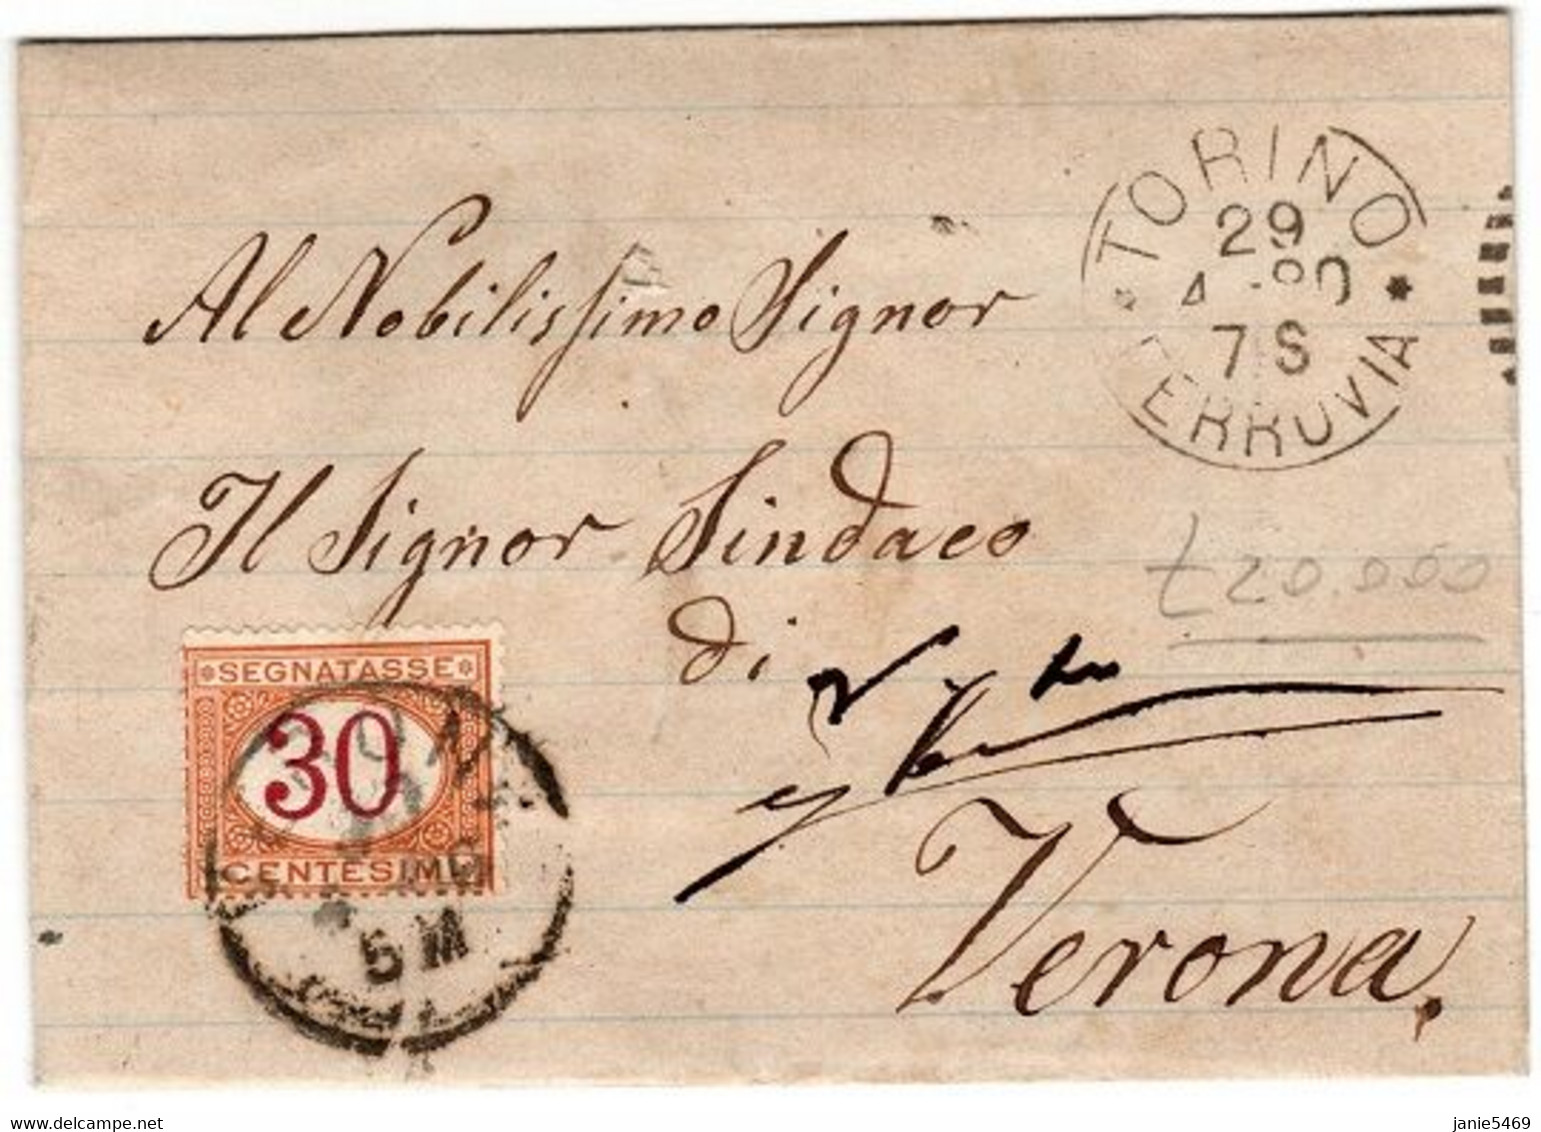 TORINO
29
4 - 80
7 S
FERROVIA
Al Nobilissimo Signor
Il Signor Sindaco
di
£ 20.000
Verona.
SEGNATASSE
30
CENTESIMI
5 M
janie5469